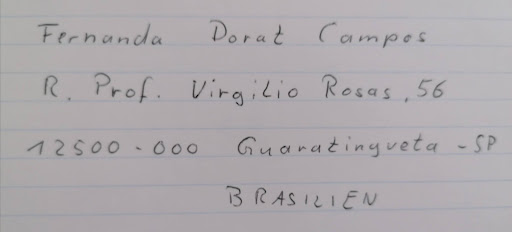 Fernanda Dorat Campos
R. Prof. Virgilio Rosas, 56
12500-000 Guaratingveta - SP
BRASILIEN